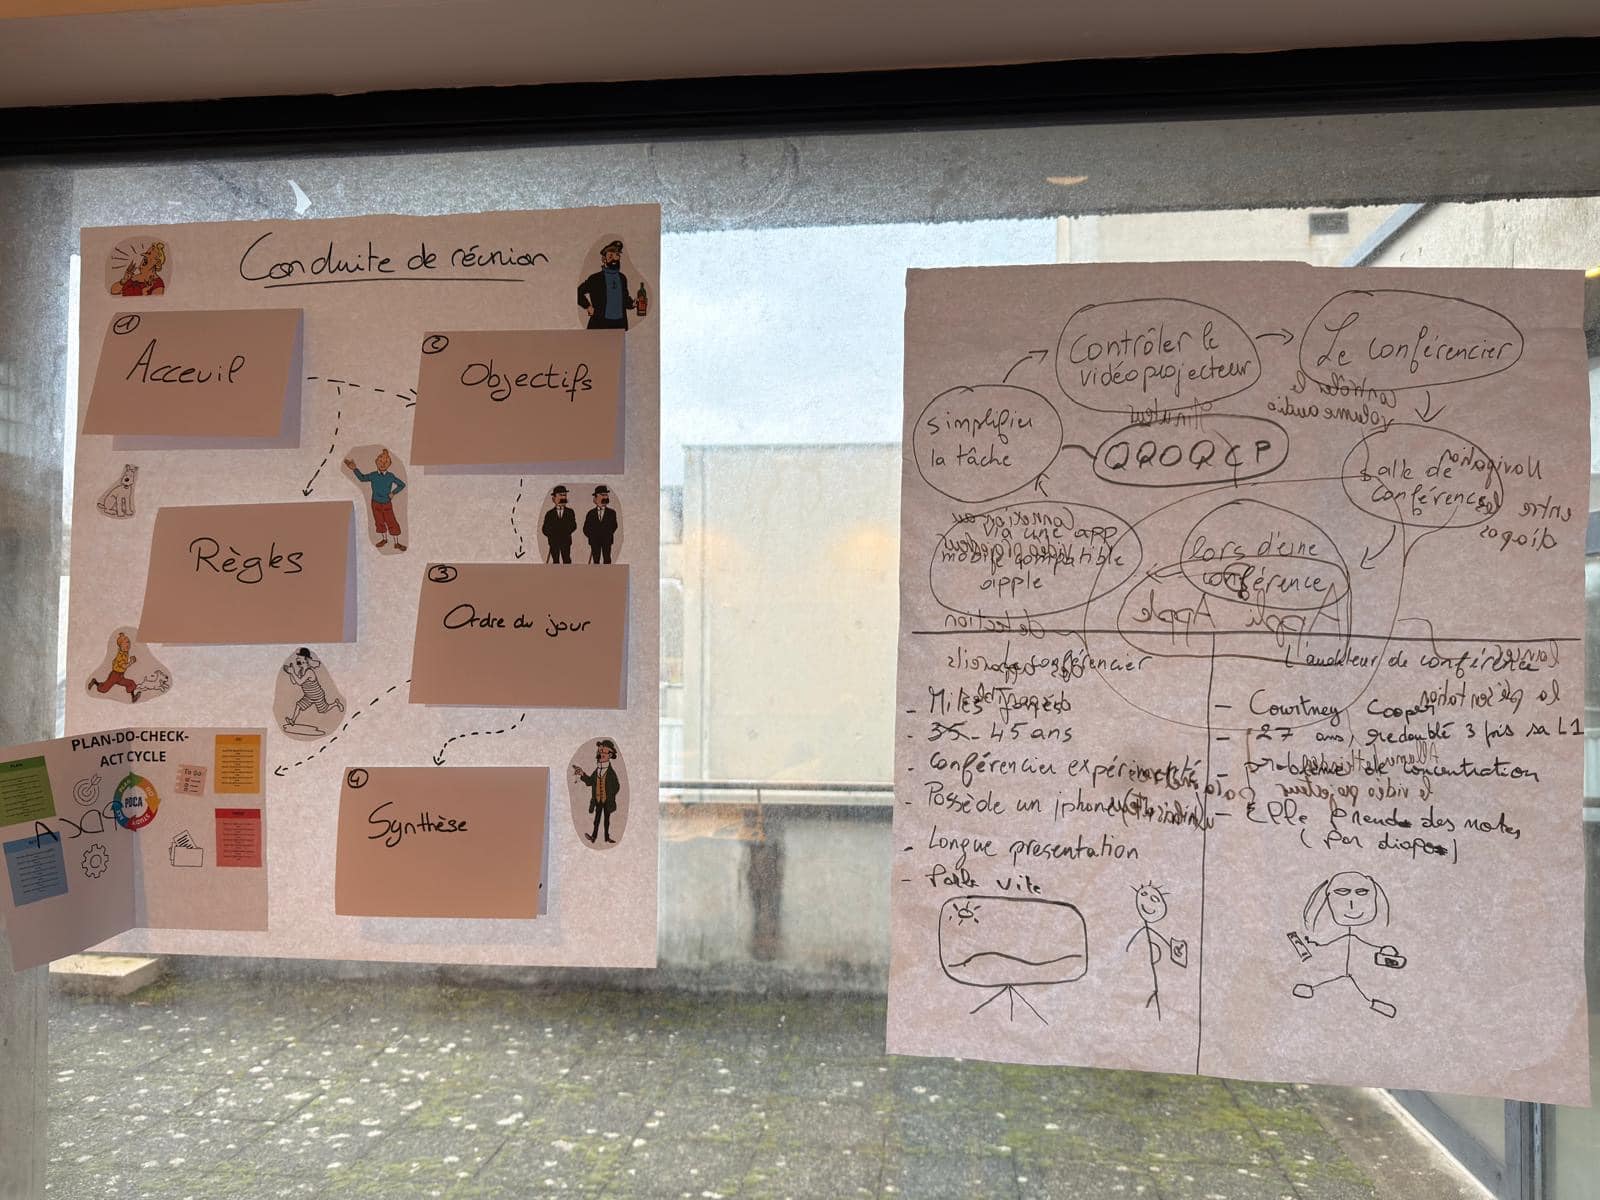 Conduite de réunion
1
Acceuil
2
Objectifs
Règles
3
Ordre du jour
4
Synthèse
PLAN-DO-CHECK-
ACT CYCLE
To Do
PDCA
PDCA
Contrôler le
vidéoprojecteur
Le conférencier
simplifier
la tâche
QQOQCP
salle de
conférences
via une app
mobile compatible
apple
lors d'une
conférence
contrôler le
volume audio
Navigation
entre les
diapos
Connexion au
vidéo projecteur
Appli Apple
detection
conférencier
- Miles
- 35 45 ans
- Conférencier expérimenté
- Possède un iphone
- Longue presentation
- Parle vite
L'auditeur de conférence
- Courtney Cooper
- 27 ans, redoublé 3 fois sa L1
- problème de concentration
- Elle prend des notes
(par diapo)
lancer
la présentation
le vidéo projecteur